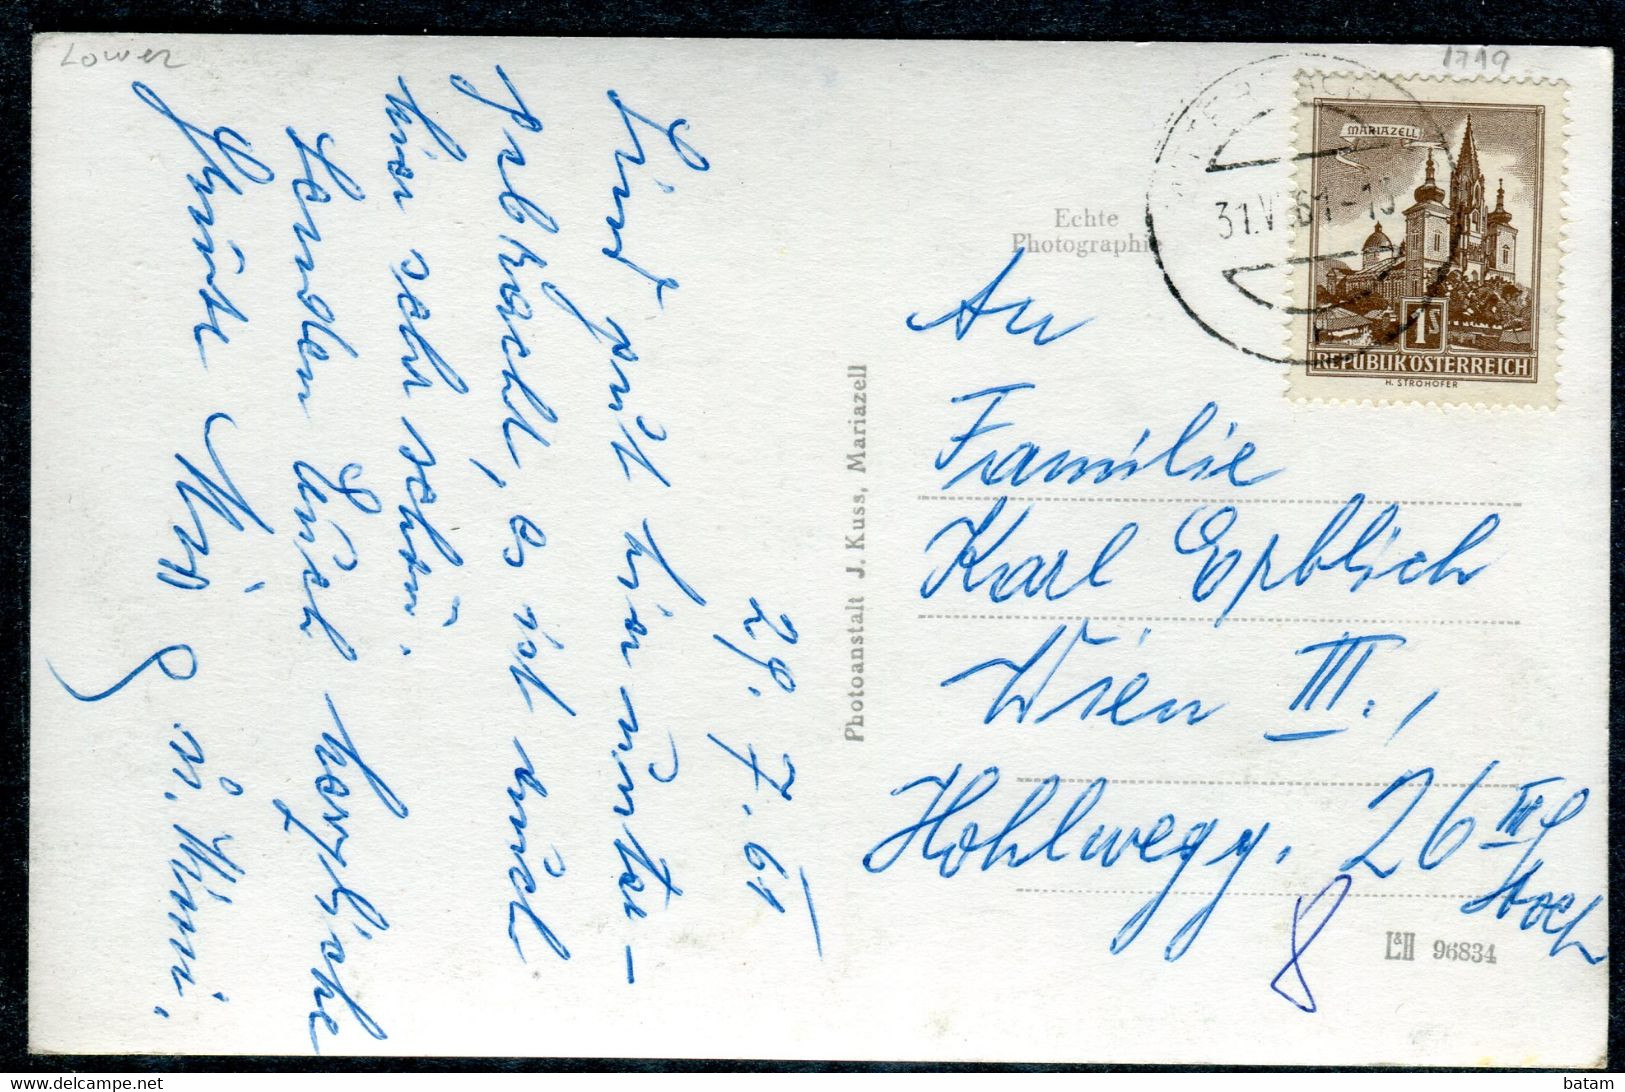 Lower
1719
29. 7. 61
Sind gut hier unter-
gebracht, es ist auch
hier sehr schön.
Senden Euch herzliche
Grüße
u. Mimi.
Echte
Photographie
Photoanstalt J. Kuss, Mariazell
31.V 61-1
MARIAZELL
1S
REPUBLIK ÖSTERREICH
H. STROHOFER
An
Familie
Karl Erblich
Wien III.,
Hohlwegg. 26
Stock
8
L&H 96834
batam